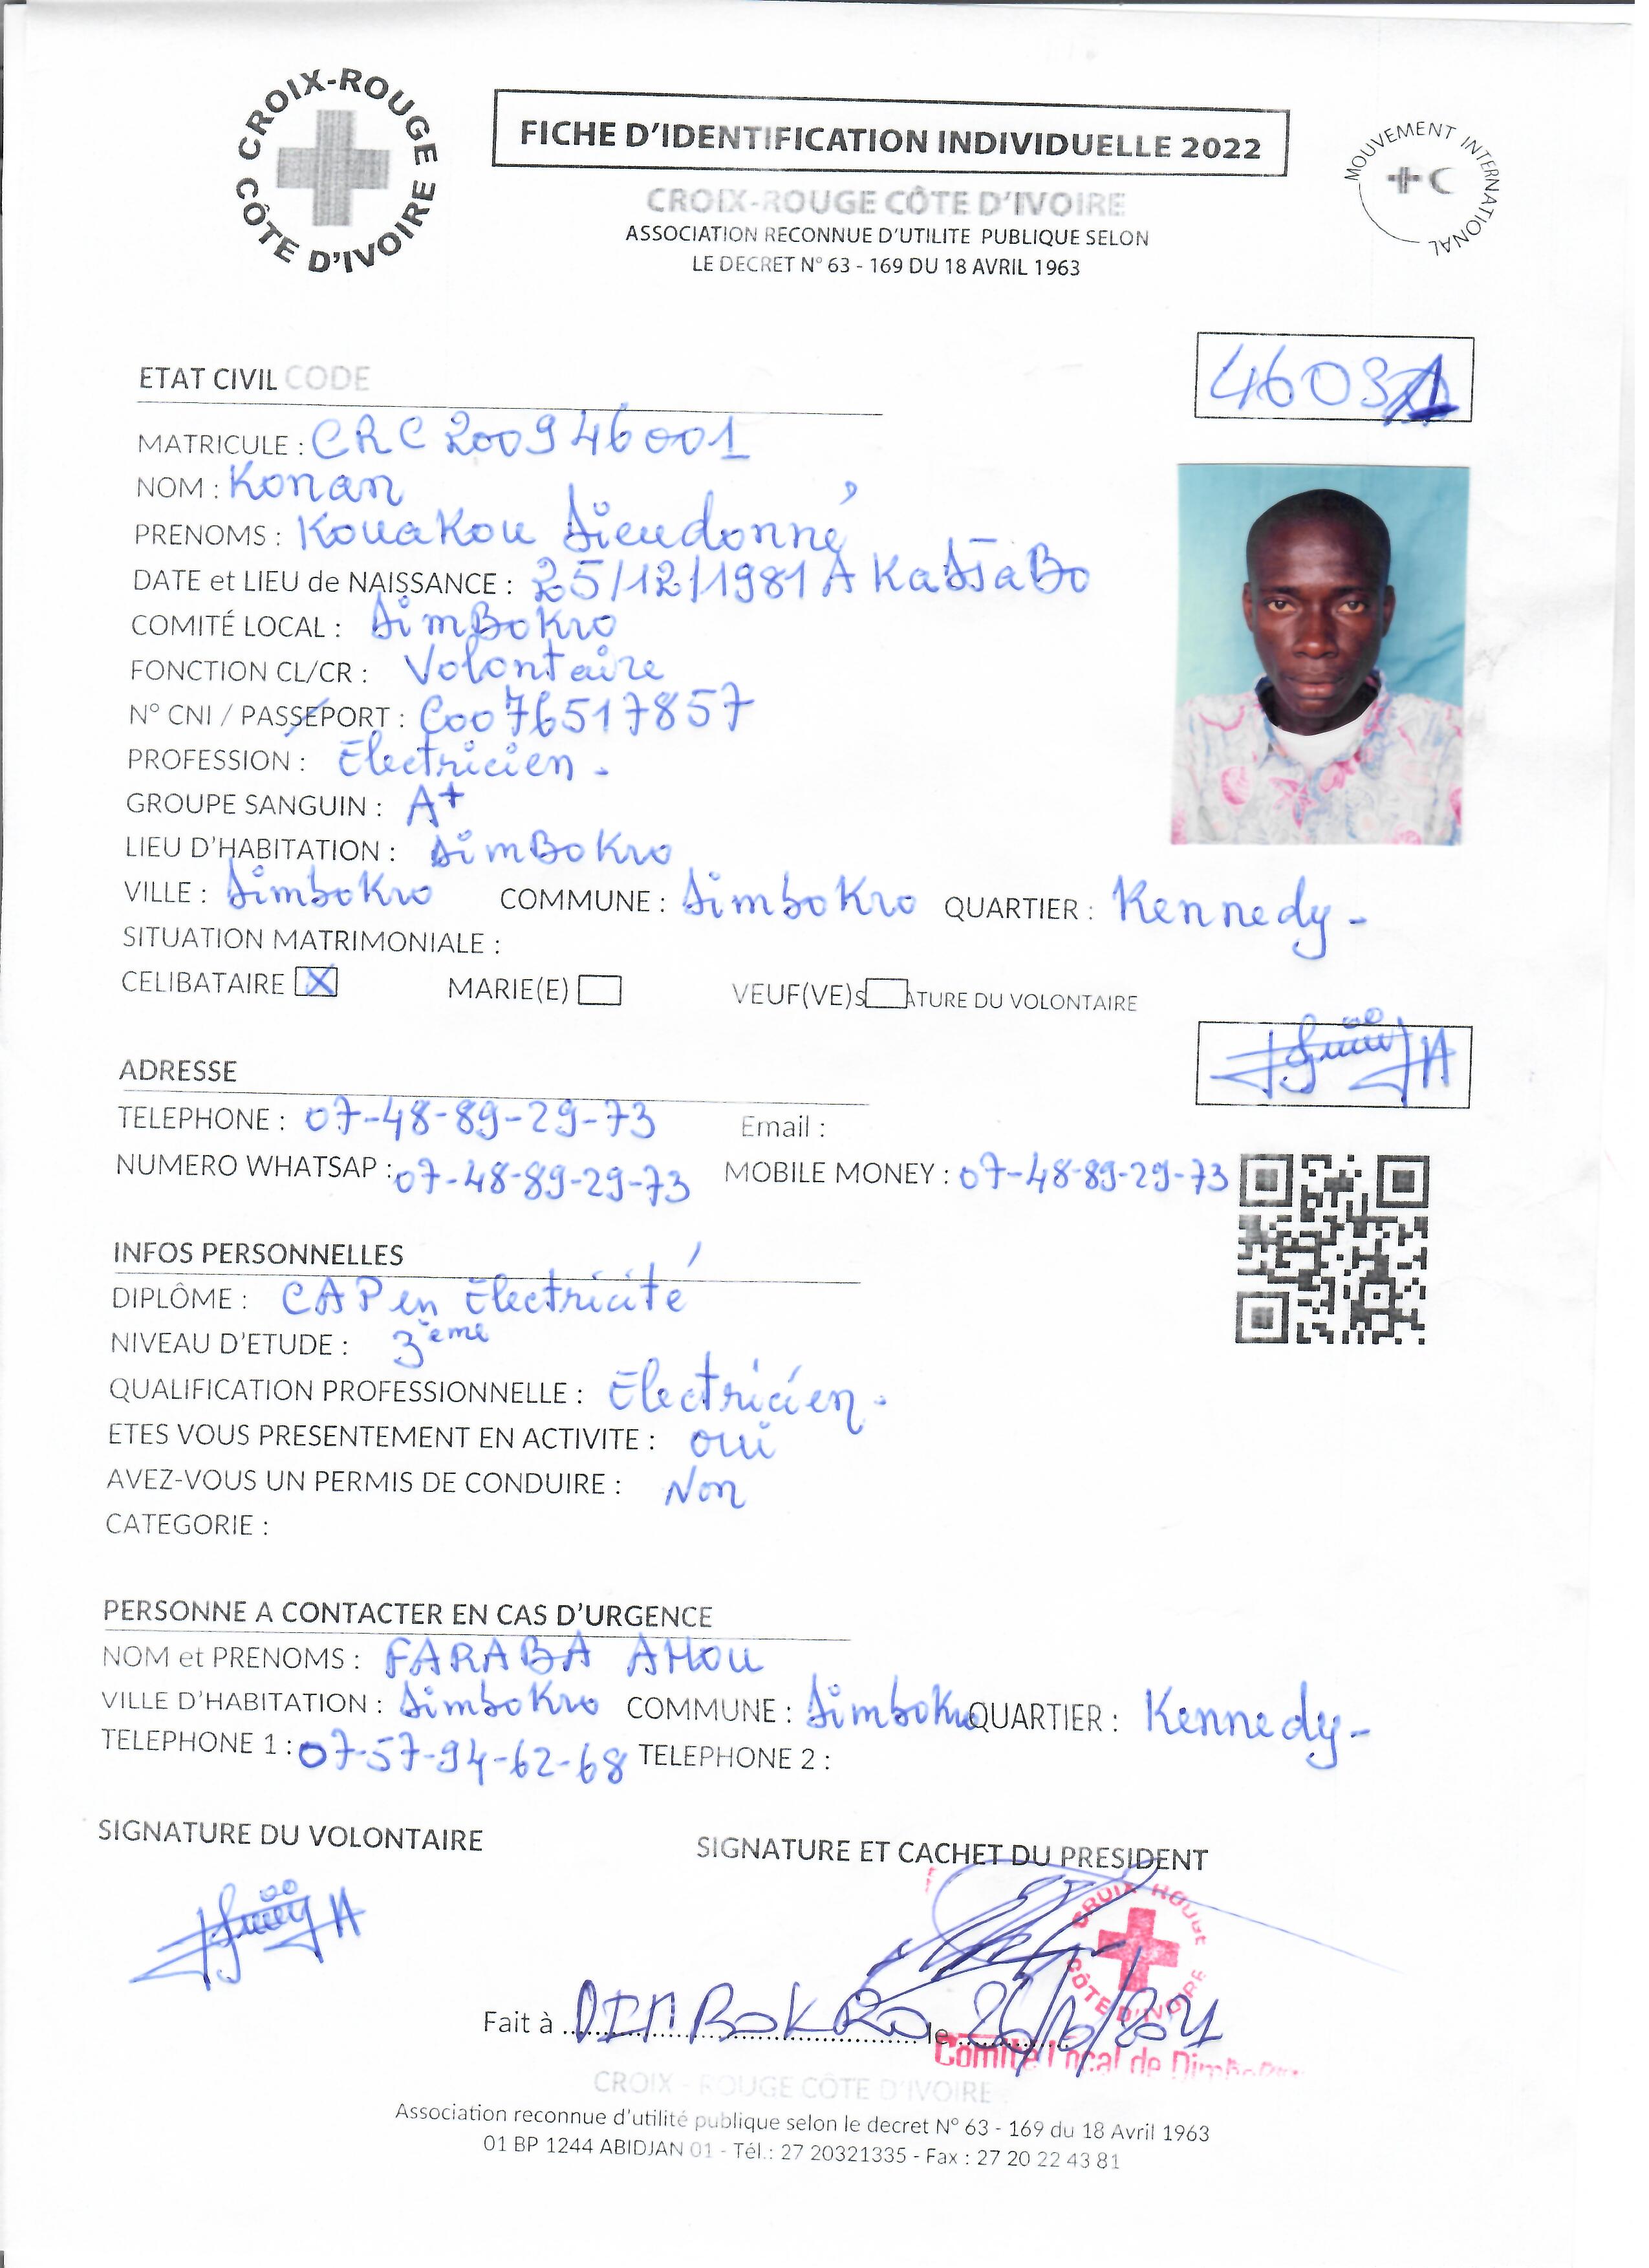 CROIX-ROUGE CÔTE D'IVOIRE
FICHE D'IDENTIFICATION INDIVIDUELLE 2022
MOUVEMENT INTERNATIONAL
CROIX-ROUGE CÔTE D'IVOIRE
ASSOCIATION RECONNUE D'UTILITE PUBLIQUE SELON
LE DECRET N° 63 - 169 DU 18 AVRIL 1963
ETAT CIVIL CODE
MATRICULE : CRC200946001
NOM : Konan
PRENOMS : Kouakou Dieudonné
DATE et LIEU de NAISSANCE : 25/12/1981 A
COMITÉ LOCAL : DimBoKro
FONCTION CL/CR : Volontaire
N° CNI / PASSEPORT : C0076517857
PROFESSION : Electricien .
GROUPE SANGUIN : A+
LIEU D'HABITATION : DimBoKro
VILLE : DimboKro COMMUNE : DimboKro QUARTIER : Kennedy -
SITUATION MATRIMONIALE :
CELIBATAIRE X MARIE(E) VEUF(VE)S ATURE DU VOLONTAIRE
ADRESSE
TELEPHONE : 07-48-89-29-73 Email :
NUMERO WHATSAP : 07-48-89-29-73 MOBILE MONEY : 07-48-89-29-73
INFOS PERSONNELLES
DIPLÔME : CAP en Electricité
NIVEAU D'ETUDE : 3ème
QUALIFICATION PROFESSIONNELLE : Electricien .
ETES VOUS PRESENTEMENT EN ACTIVITE : oui
AVEZ-VOUS UN PERMIS DE CONDUIRE : Non
CATEGORIE :
PERSONNE A CONTACTER EN CAS D'URGENCE
NOM et PRENOMS : FARABA AHOU
VILLE D'HABITATION : DimboKro COMMUNE : DimboKro QUARTIER : Kennedy -
TELEPHONE 1 : 07-57-94-62-68 TELEPHONE 2 :
SIGNATURE DU VOLONTAIRE SIGNATURE ET CACHET DU PRESIDENT
CROIX ROUGE CÔTE D'IVOIRE
Fait à DIMBOKRO le
Comité Local de Dimbokro
CROIX - ROUGE CÔTE D'IVOIRE
Association reconnue d'utilité publique selon le decret N° 63 - 169 du 18 Avril 1963
01 BP 1244 ABIDJAN 01 - Tél.: 27 20321335 - Fax : 27 20 22 43 81